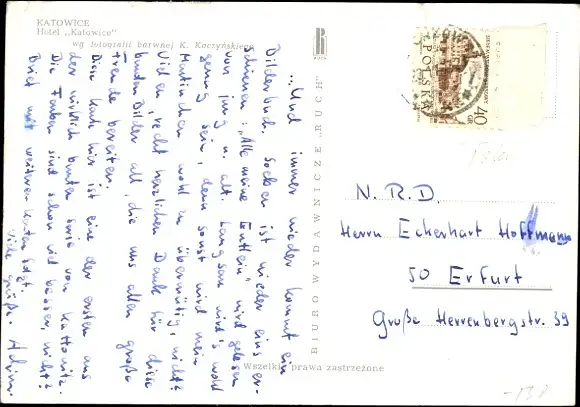 KATOWICE
Hotel „Katowice"
wg fotografii barwnej K. Kaczyńskiego
„Und immer wieder kommt ein
Bilderbuch. Soeben ist wieder eins er-
schienen: „Alle meine Entlein" wird gelesen
von jung u. alt. Langsam wird's wohl
genug sein, denn sonst wird mein
Martinchen wohl zu übermütig, nicht?
Vielen, recht herzlichen Dank für diese
bunten Bilder all, die uns allen große
Freude bereiten.
Diese Karte hier ist eine der ersten aus
der wirklich bunten Serie von Kattowitz.
Die Farben sind schon viel besser, nicht?
Brief mit weiteren Karten folgt.
Viele Grüße.
BIURO WYDAWNICZE „RUCH"
RUCH
POLSKA
40
GR
Polen
N. R. D.
Herrn Eckerhart Hoffmann
50 Erfurt
Große Herrenbergstr. 39
Wszelkie prawa zastrzeżone